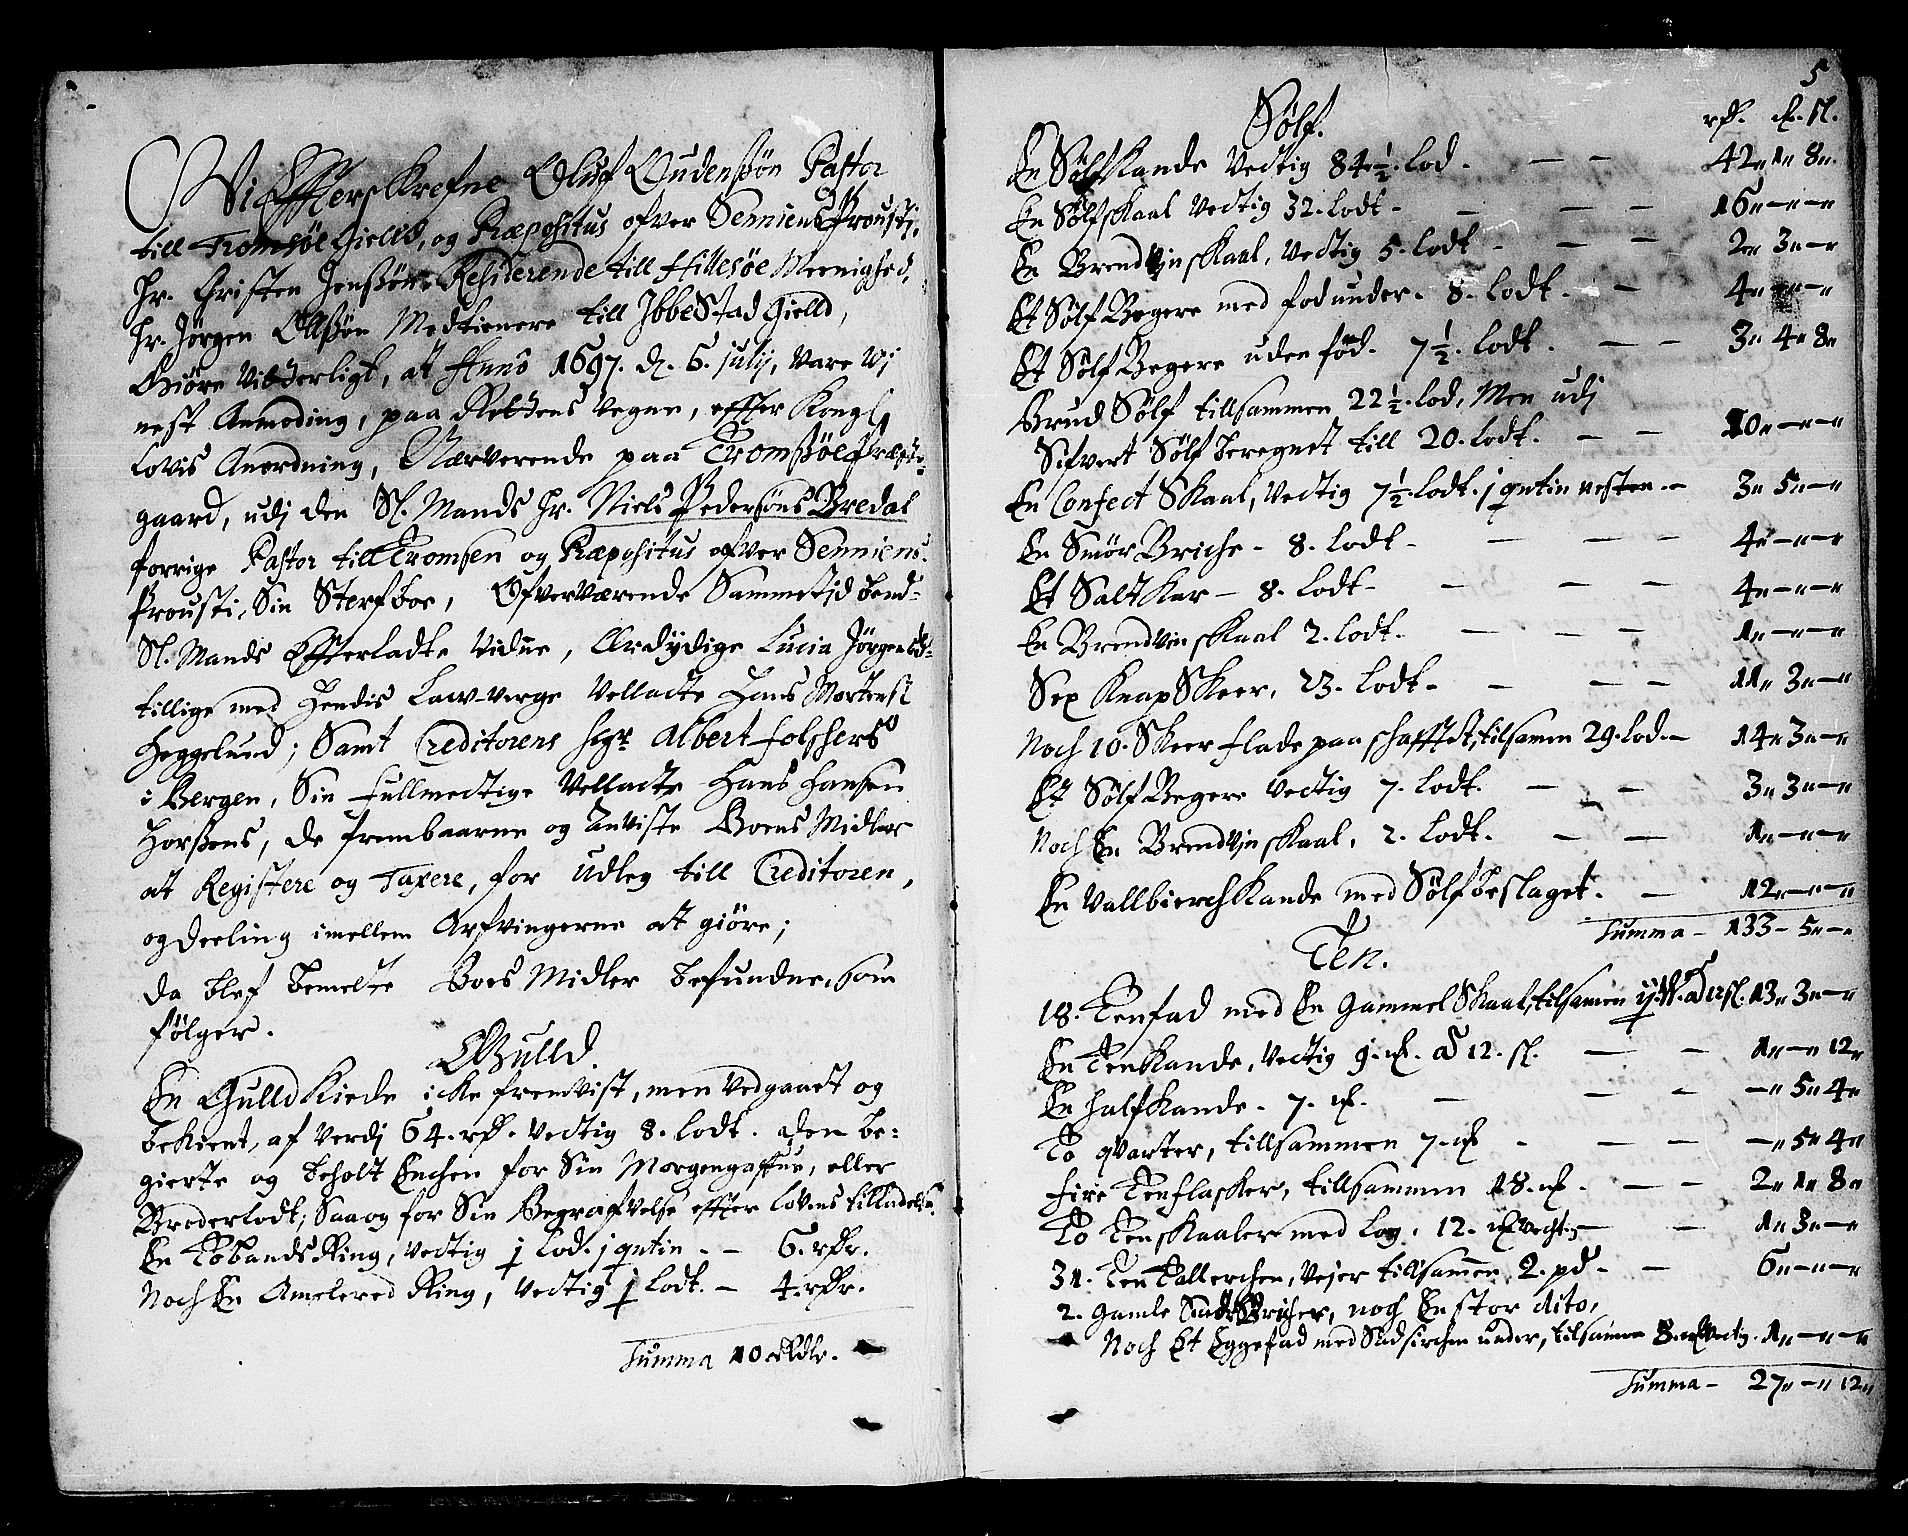 Wi Efferskrefne Oluf Oudensøn Pastor
till Tromsøe Gield, og Præpositus ofver Senniens Prousti,
Hr. Christen Jensøn Residerende till Hillesøe Meenighed,
Hr. Jørgen Ollsøn Medtienere till Ibbestad Gielld,
Giøre Vitterligt, at Anno 1697. d. 6. Julij, Vare Wj
nest Anmoding, paa Rettens Vegne, effter Kongl.
Lovis Anordning, Nærverende paa Tromsøe Præste
gaard, udj den Sl. Mands Hr. Niels Pedersøns Bredal
forrige Pastor till Tromsen og Præpositus ofver Senniens
Prousti, Sin Sterfboe, Ofverværende Sammetjd bemd:
Sl. Mands Effterladte Vidue, Ærdydige Lucia Jørgensd:
tillige med hendis Law-verge Vellagte Hans Mortens.
Heggelund; Samt Creditorens Sgr. Albert Folschers
i Bergen, Sin Fullmegtige Vellagte Hans Hansen
Horsens, de frembaarne og Anviste Boens Midler
at Registere og Taxere, for Udleg till Creditoren,
og deeling imellem Arfvingerne at giøre;
da blef bemelte Boes Midler befundne, som
følger.
Gulld.
En Gulld Kiede icke fremvist, men vedgaaet og
bekient, af Verdj 64. rdr. Vegtig 8. Lodt. den be:
gierte og beholt Enchen for Sin Morgengaffue, eller
Broderlodt; Saa og for Sin Begrafvelse effter Lovens tilladelse.
En Tobands Ring, Vegtig j Lod. j qvtin. - 6. rdr.
Noch En Amelered Ring, Vegtig j Lodt. - 4. rdr.
Summa 10 Rdlr.
5
Sølf.
rd. ₥. sl.
En Sølf Kande Vegtig 84 1/2. Lod. - 42" 1" 8"
En Sølfskaal Vegtig 32. Lodt - 16" - " - "
En Brendvjnskaal, Vegtig 5. Lodt - 2" 3" - "
Et Sølf Begere med fod under. 8. Lodt. - 4" - " - "
Et Sølf Begere uden fod. 7 1/2. Lodt. - 3" 4" 8"
Brud Sølf tillsammen 22 1/2. Lod, Men udj
Sifvert Sølf beregnet till 20. Lodt. - 10" - " - "
En Confect Skaal, Vegtig 7 1/2. Lodt. j qvtin nesten - 3" 5" - "
En Smør Briche - 8. Lodt - 4" - " - "
Et Salt Kar - 8. Lodt - 4" - " - "
En Brendvin skaal 2. Lodt. - 1" - " - "
Sex Knap Skeer, 23. Lodt - 11" 3" - "
Noch 10. Skeer flade paa schafftet, tilsamen 29. Lod. - 14" 3" - "
Et Sølf Begere Vegtig 7. Lodt. - 3" 3" - "
Noch En Brendvjn skaal, 2. Lodt. - 1" - " - "
En Vallbierch Kande med Sølf beslaget. - 12" - " - "
Summa - 133 - 5" - "
Ten.
18. Tenfad med En Gammel Skaal, tilsamen ad 12 sl. 13" 3" - "
En Ten Kande, Vegtig 9. ₥. ad 12. sl. - 1" - " 12"
En Half Kande - 7. ₥. - " 5" 4"
To qvarter, tillsammen 7. ₥ - - " 5" 4"
Fire Tenflasker, tillsammen 18. ₥. - 2" 1" 8"
To Ten skaaler med Log. 12. ₥ Vechtig - 1" 3" - "
31. Ten Tallerchen, Vejer tillsamen 2. pd - 6" - " - "
2. Gamle Smør Bricher, noch En stor dito,
Noch Et Eggefad med under, tilsamen 8. ₥ Vegtig. 1" - " - "
Summa - 27" - " 12"